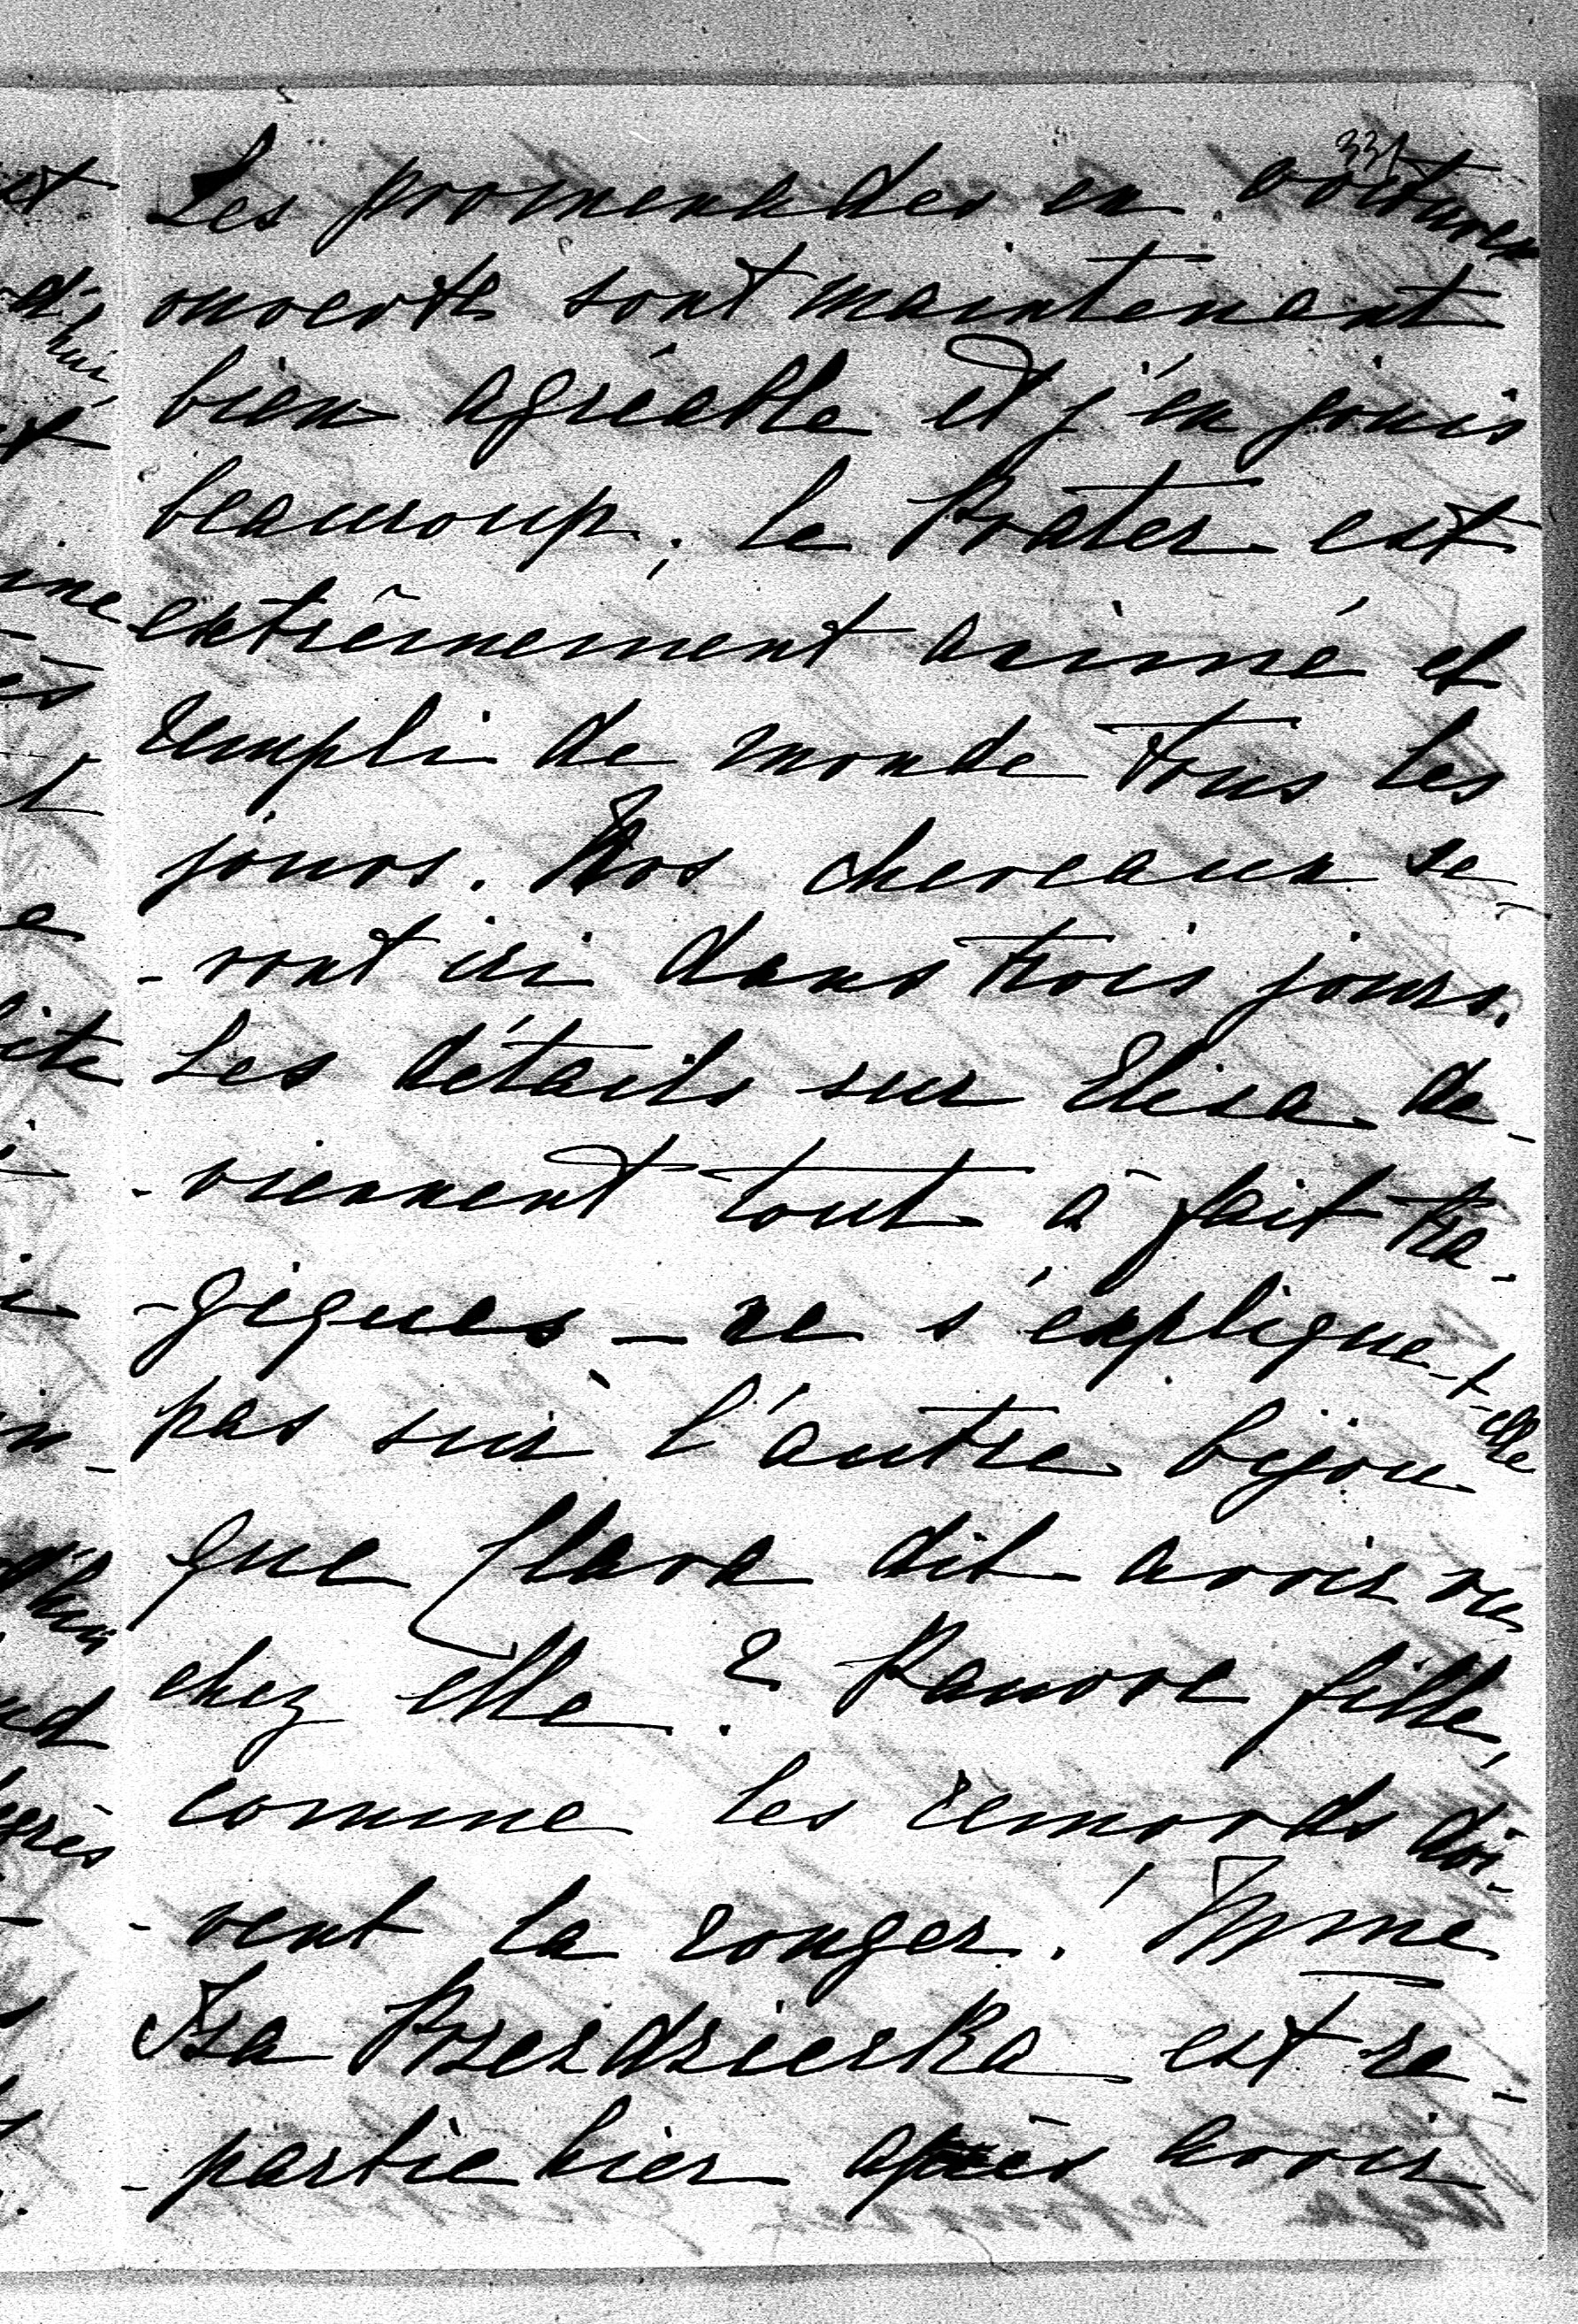 331
Les promenades en voitures
ouverte sont maintenant
bien agréable et j'en jouis
beaucoup; le Prater est
extrêmement animé et
rempli de monde tous les
jours. Nos chevaux se-
-ront ici dans trois jours.
Les détails sur Elisa de-
-viennent tout à fait tra-
-giques _ ne s'explique-t-elle
pas sur l'autre bijou
que Clara dit avoir vu
chez elle? Pauvre fille,
comme les remords doi-
-vent la ronger! Mme
Isa Przezdziecka est re-
-partie hier après avoir